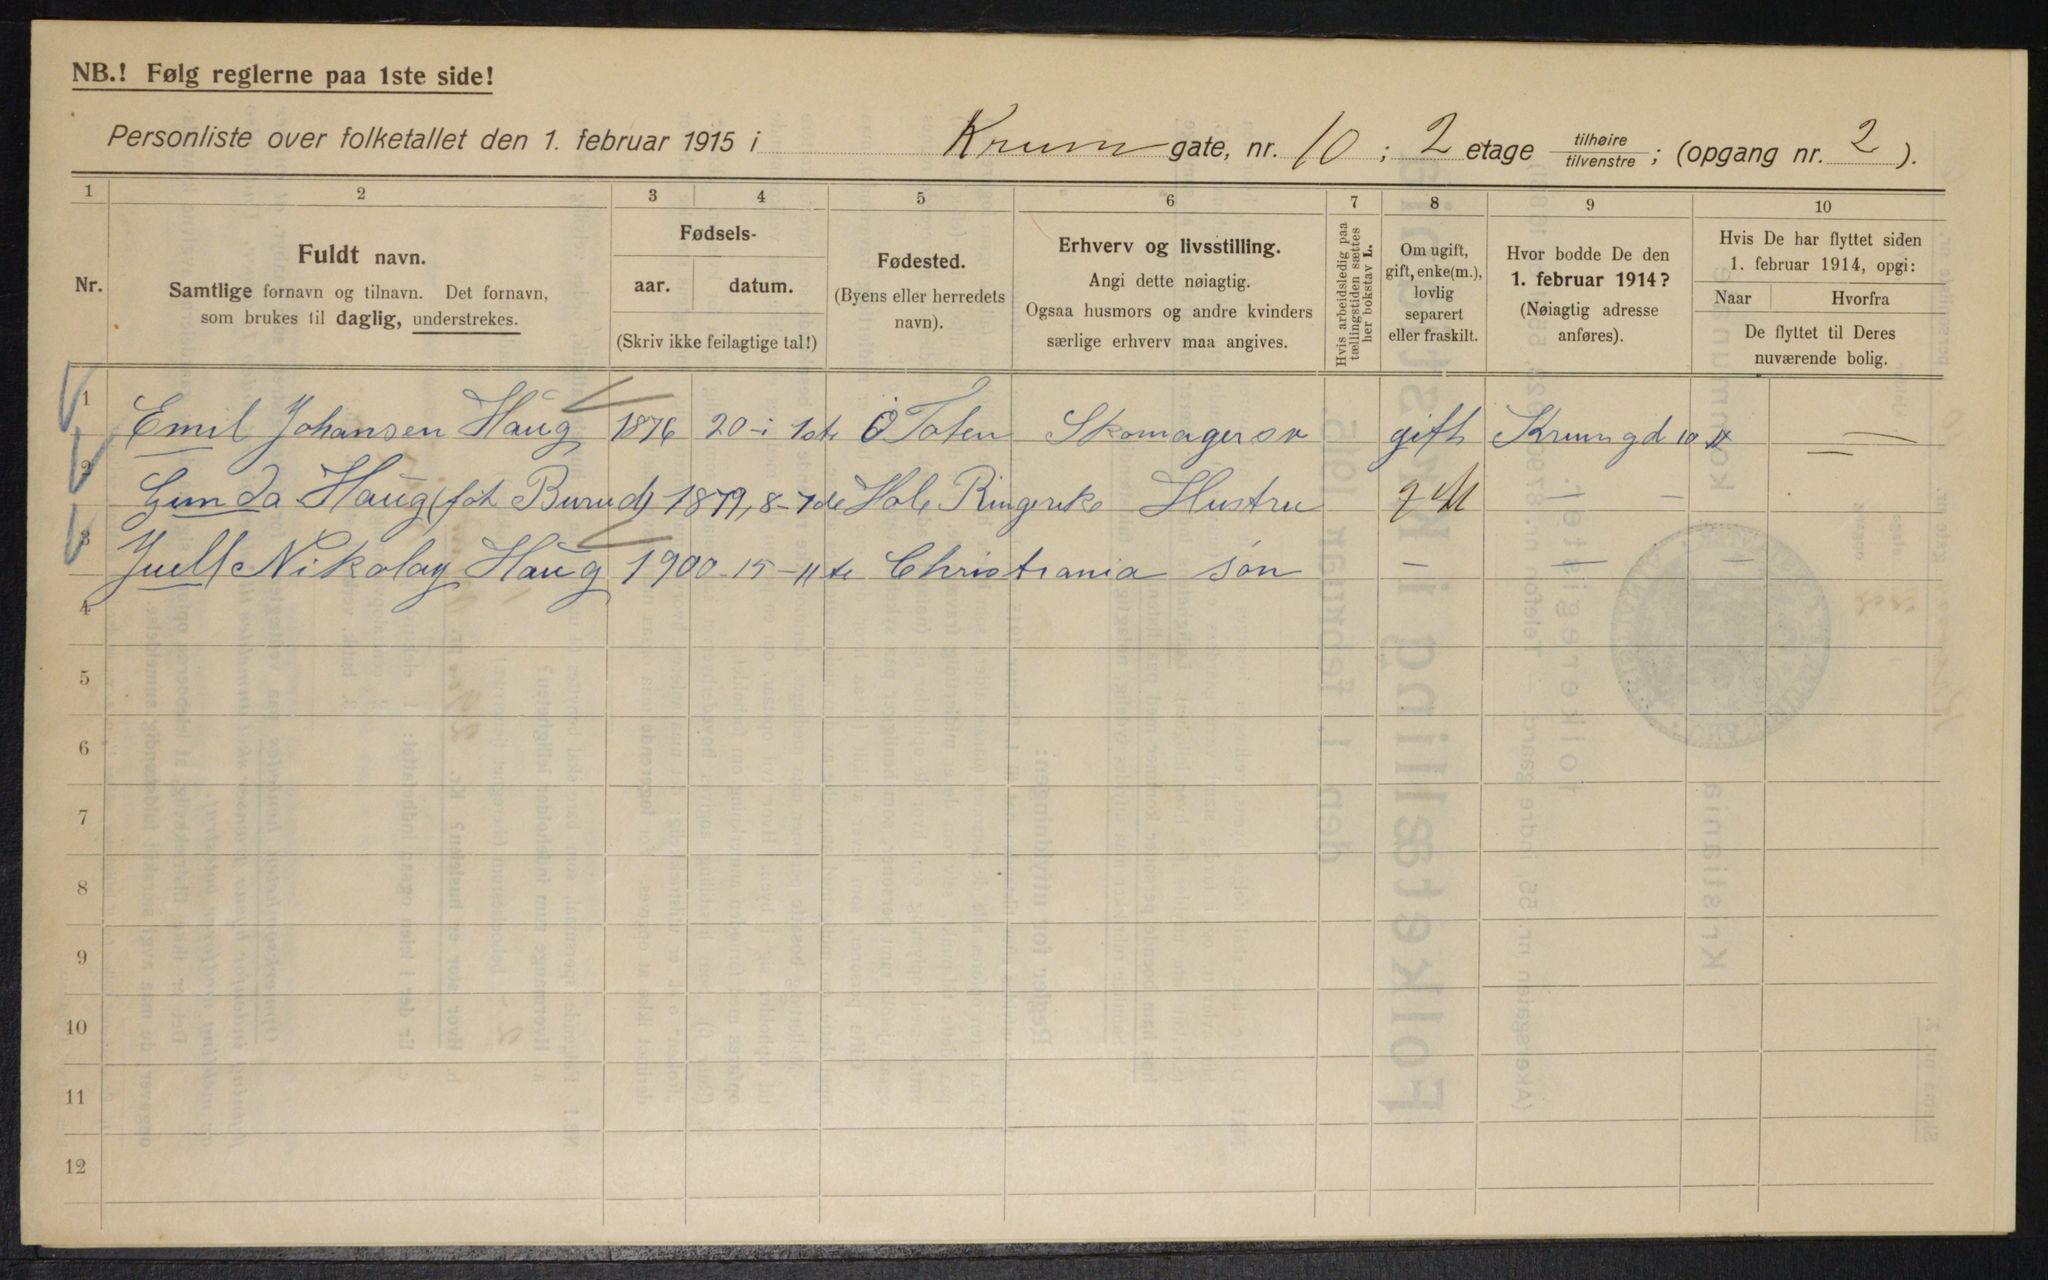 NB.! Følg reglerne paa 1ste side!
Personliste over folketallet den 1. februar 1915 i Krum gate, nr. 10 ; 2 etage tilhøire / tilvenstre ; (opgang nr. 2 ).
1 2 3 4 5 6 7 8 9 10
Nr.
Fuldt navn.
Samtlige fornavn og tilnavn. Det fornavn,
som brukes til daglig, understrekes.
Fødsels-
aar. datum.
(Skriv ikke feilagtige tal!)
Fødested.
(Byens eller herredets
navn).
Erhverv og livsstilling.
Angi dette nøiagtig.
Ogsaa husmors og andre kvinders
særlige erhverv maa angives.
Hvis arbeidsledig paa
tællingstiden sættes
her bokstav L.
Om ugift,
gift, enke(m.),
lovlig
separert
eller fraskilt.
Hvor bodde De den
1. februar 1914?
(Nøiagtig adresse
anføres).
Hvis De har flyttet siden
1. februar 1914, opgi:
Naar Hvorfra
De flyttet til Deres
nuværende bolig.
1 Emil Johansen Haug 1876 20-1 Ø Toten Skomagersv gift Krumgd 10 —
2 Gunda Haug (føt Burud) 1879, 8-7de Hole Ringerike Hustru gift — —
3 Juell Nikolay Haug 1900 -15 -11te Christrania søn — — —
4
5
6
7
8
9
10
11
12